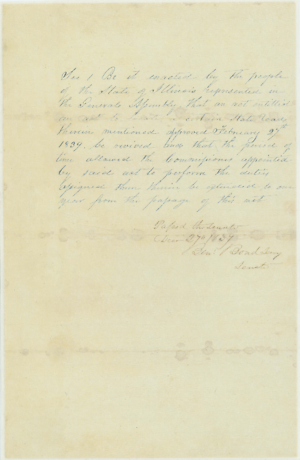 Sec 1 Be it enacted by the people
of the State of Illinois represented in
the General Assembly, That an act entitled
an act to locate a certain State Road
therein mentioned approved February
1839. be revived and that the period of
time allowed the Commissioners appointed
by said act to perform the duties
assigned them therein be extended to one
year from the passage of this act
Passed the Senate
1839
Secy
Senate